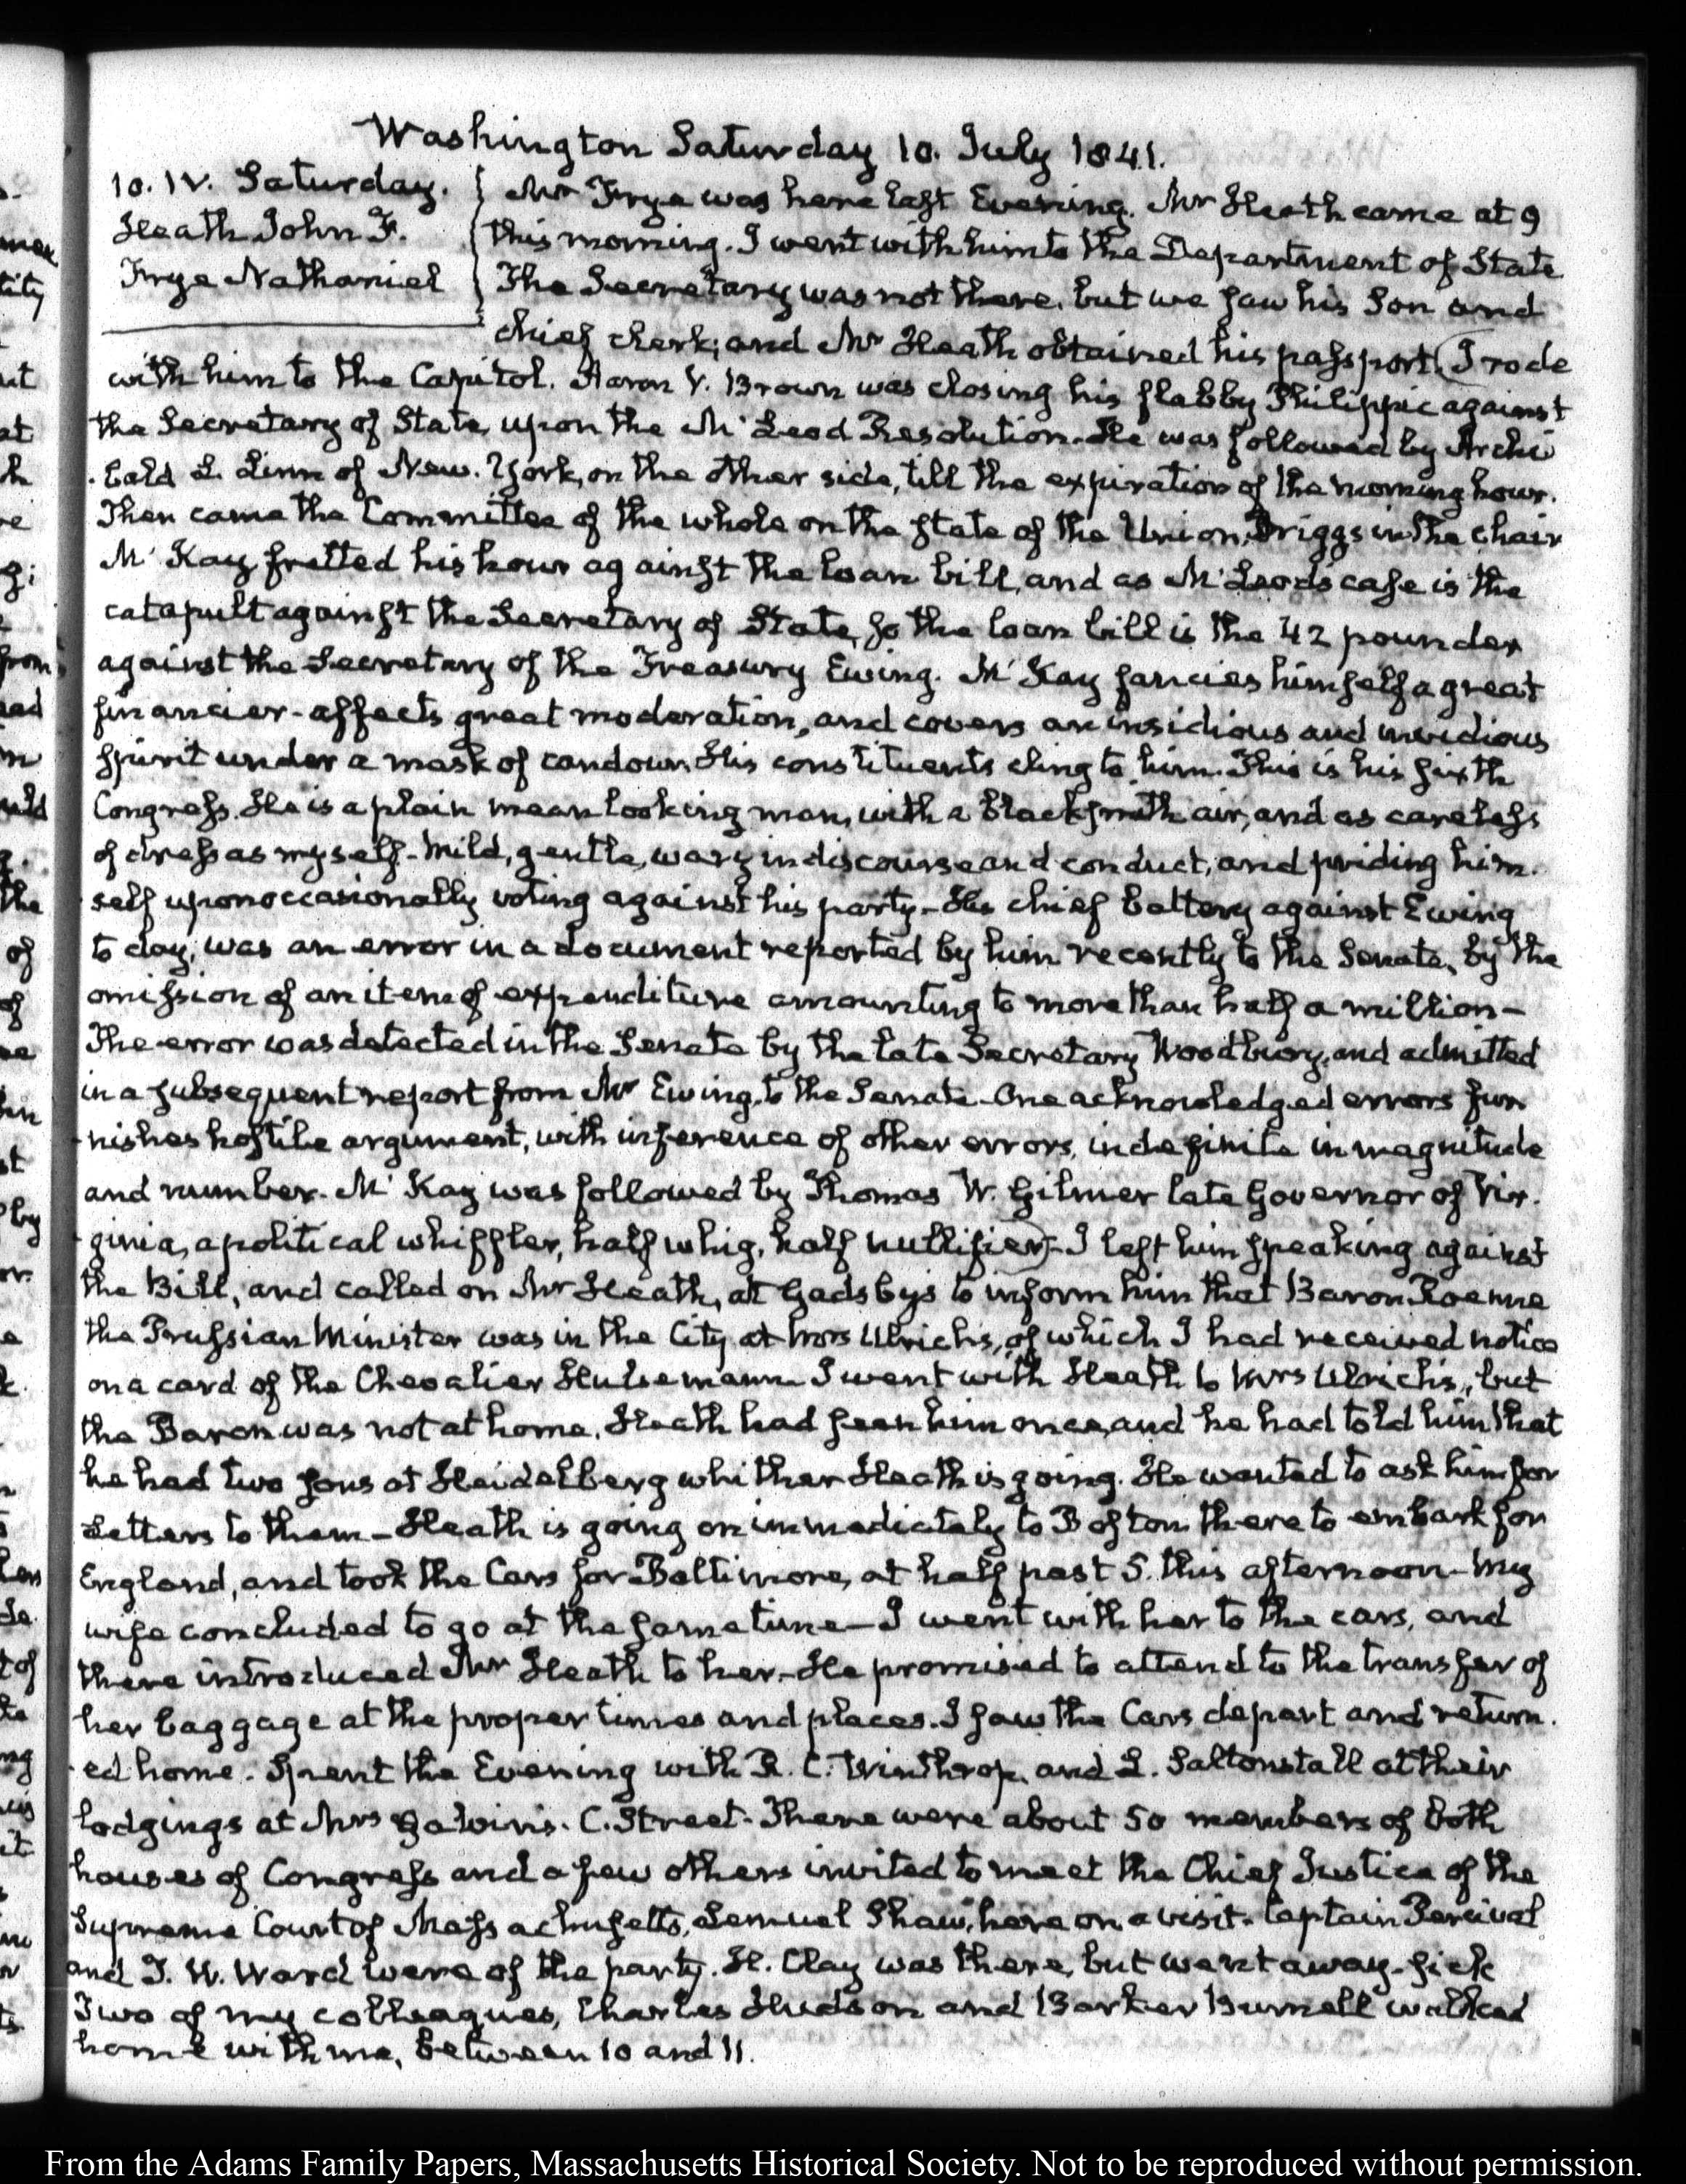 Washington Saturday 10. July 1841.
10. IV. Saturday.
Heath John F.
Frye Nathaniel
Mr Frye was here last Evening. Mr Heath came at 9
this morning. I went with him to the Department of State
The Secretary was not there, but we saw his Son and
chief clerk; and Mr Heath obtained his passport. (I rode
with him to the Capitol. Aaron V. Brown was closing his flabby Philippic against
the Secretary of State, upon the McLeod Resolution. He was followed by Archi
bald L. Linn of New-York, on the other side, till the expiration of the morning hour.
Then came the Committee of the whole on the state of the Union, Briggs in the chair
McKay fretted his hour against the loan bill, and as McLeod's case is the
catapult against the Secretary of State, so the loan bill is the 42 pounder
against the Secretary of the Treasury Ewing. McKay fancies himself a great
financier- affects great moderation, and covers an insidious and invidious
spirit under a mask of candour. His constituents cling to him. This is his sixth
Congress. He is a plain mean looking man, with a blacksmith air, and as careless
of dress as myself- Mild, gentle, wary in discourse and conduct, and priding him-
self upon occasionally voting against his party- His chief battery against Ewing
to day, was an error in a document reported by him recently to the Senate, by the
omission of an item of expenditure amounting to more than half a million-
The error was detected in the Senate by the late Secretary Woodbury, and admitted
in a subsequent report from Mr Ewing, to the Senate- One acknowledged errors fur
nishes hostile argument, with inference of other errors, indefinite in magnitude
and number. McKay was followed by Thomas W. Gilmer late Governor of Vir-
ginia, a political whiffler, half whig, half nullifier)- I left him speaking against
the Bill, and called on Mr Heath, at Gadsbys to inform him that Baron Roenne
the Prussian Minister was in the City at Mrs Ulrich's, of which I had received notice
on a card of the Chevalier Hulsemann- I went with Heath to Mrs Ulrich's, but
the Baron was not at home. Heath had seen him once, and he had told him that
he had two sons at Heidelberg whither Heath is going. He wanted to ask him for
Letters to them- Heath is going on immediately to Boston there to embark for
England, and took the Cars for Baltimore, at half past 5. this afternoon- My
wife concluded to go at the same time- I went with her to the cars, and
there introduced Mr Heath to her- He promised to attend to the transfer of
her baggage at the proper times and places. I saw the Cars depart and return-
ed home. Spent the Evening with R. C. Winthrop, and L. Saltonstall at their
lodgings at Mrs C. Street. There were about 50 members of both
houses of Congress and a few others invited to meet the Chief Justice of the
Supreme Court of Massachusetts, Lemuel Shaw, here on a visit. Captain Percival
and T. W. Ward were of the party. H. Clay was there, but went away- sick
Two of my colleagues, Charles Hudson and Barker Burnell walked
home with me, between 10 and 11.
From the Adams Family Papers, Massachusetts Historical Society. Not to be reproduced without permission.